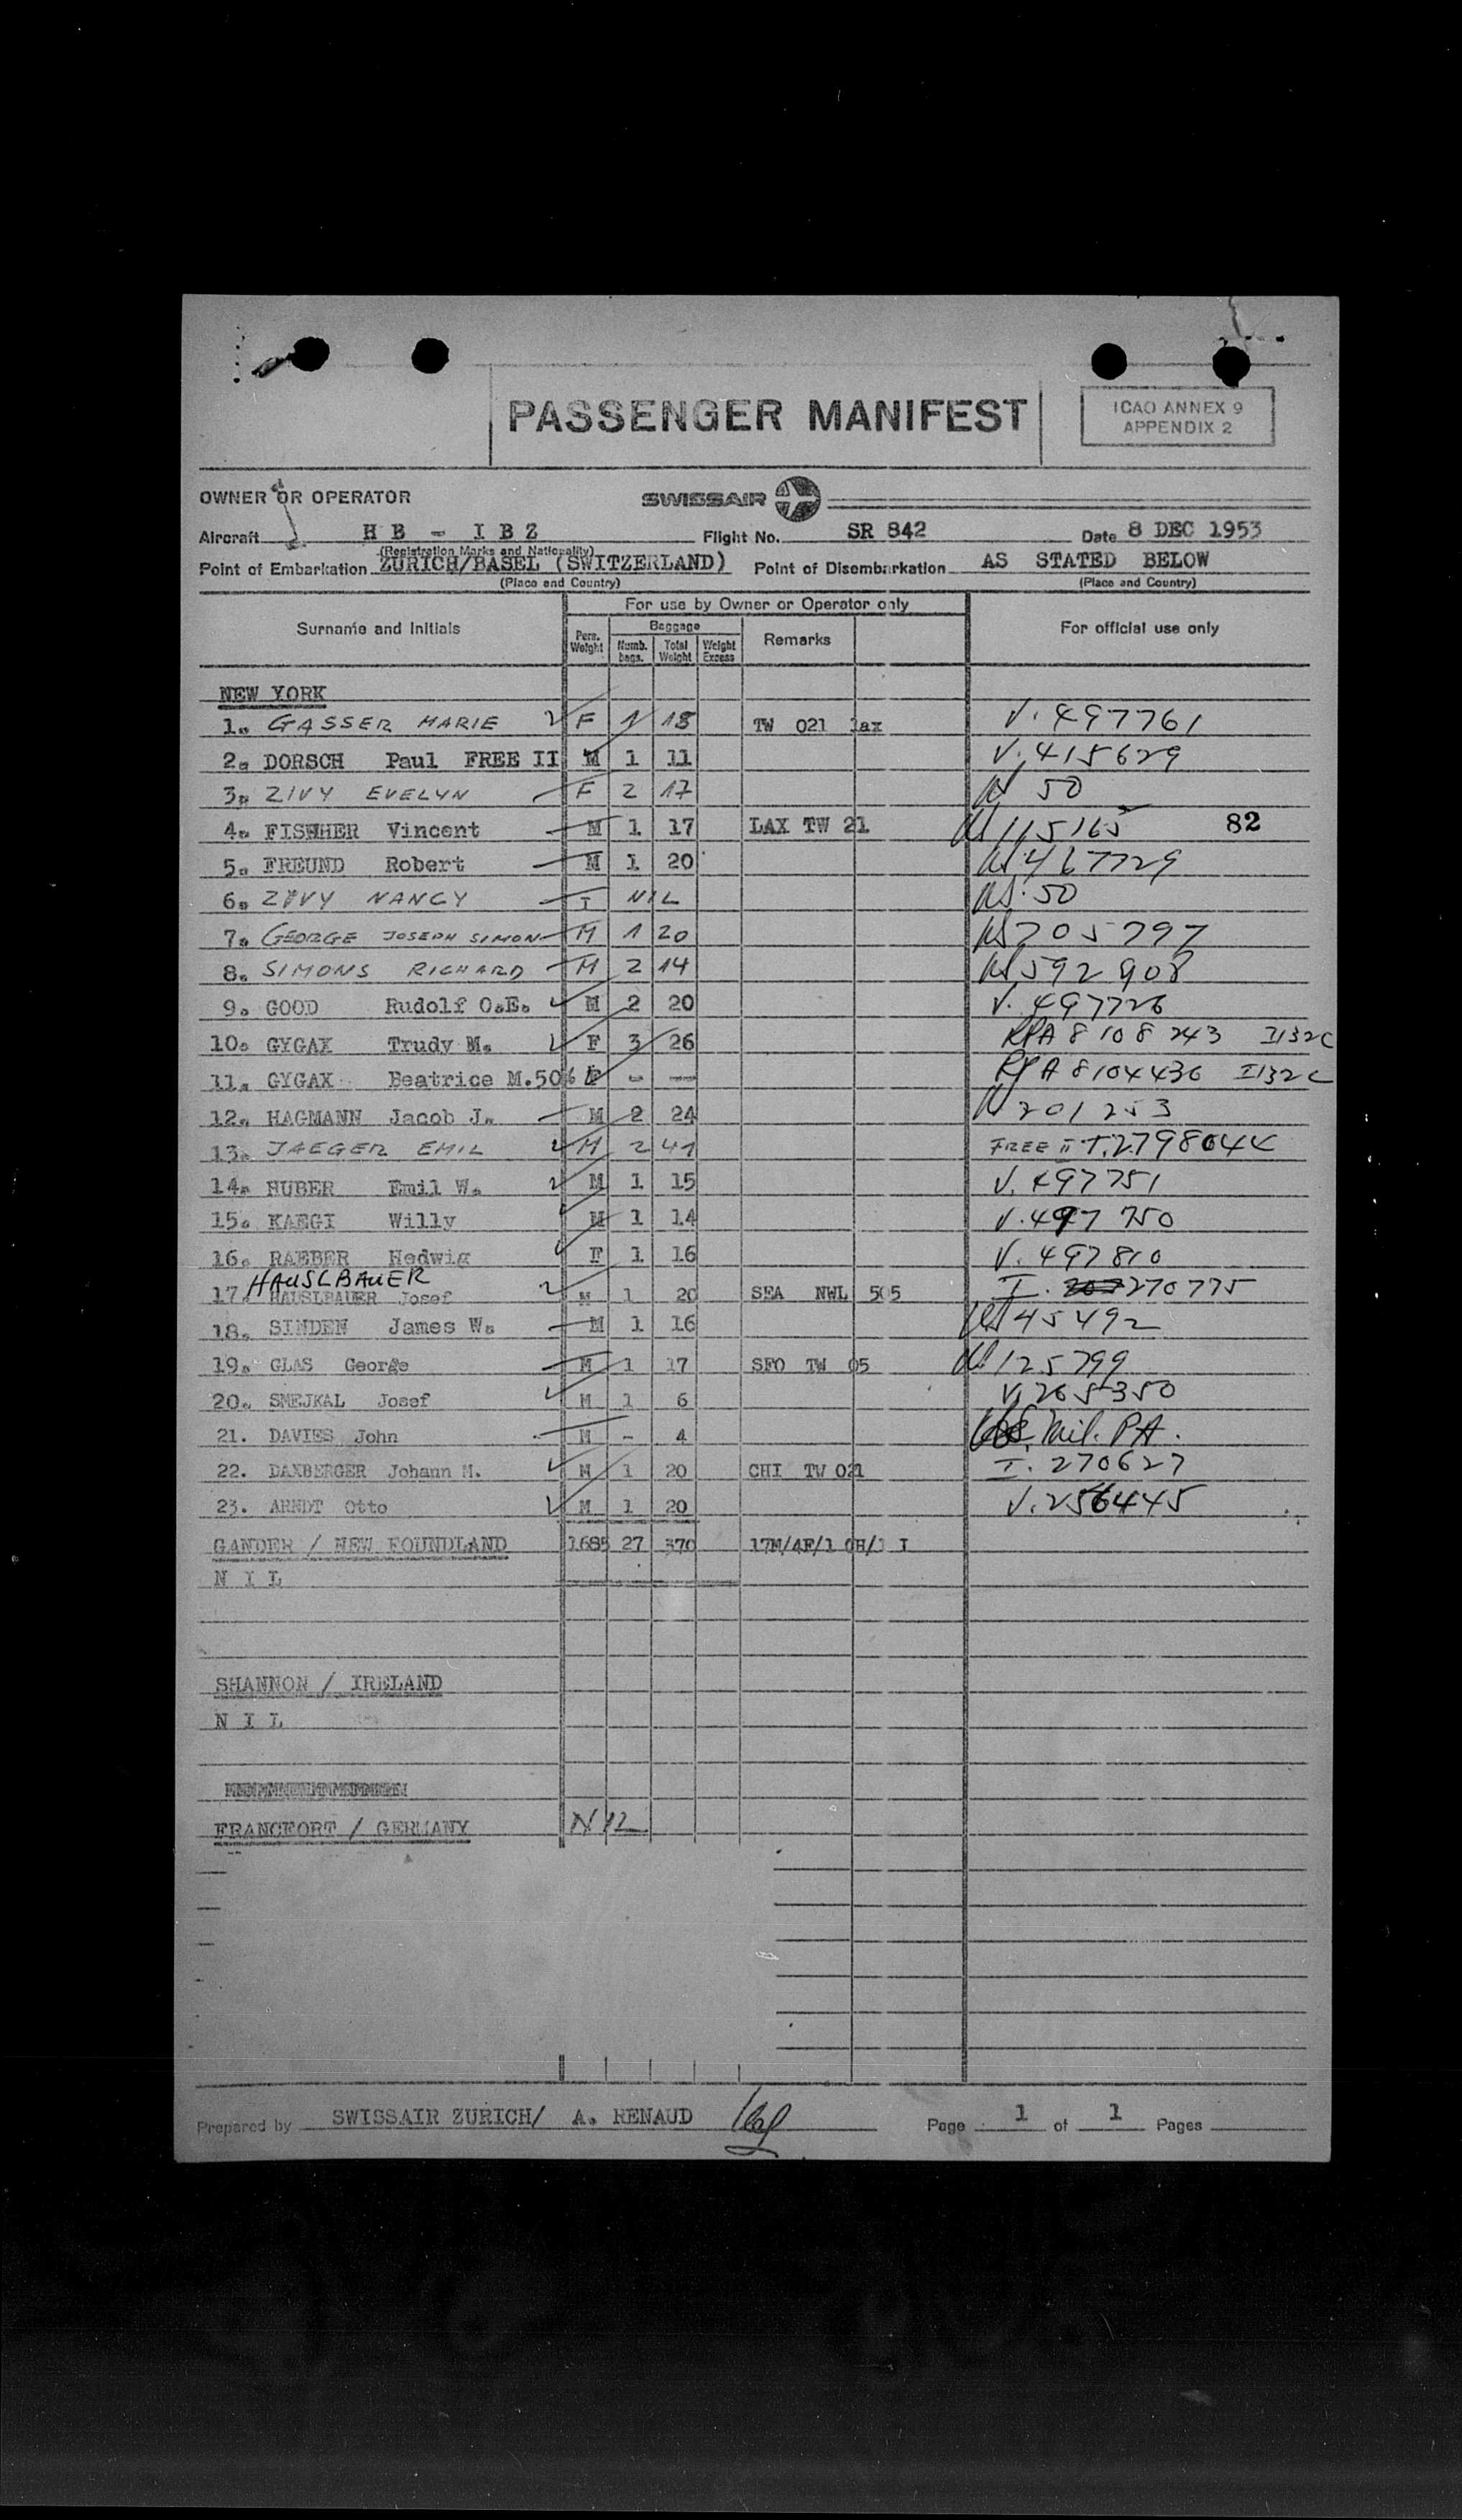 PASSENGER MANIFEST
ICAO ANNEX 9
APPENDIX 2
OWNER OR OPERATOR SWISSAIR
Aircraft H B - I B Z Flight No. SR 842 Date 8 DEC 1953
(Registration Marks and Nationality)
Point of Embarkation ZURICH/BASEL (SWITZERLAND) Point of Disembarkation AS STATED BELOW
(Place and Country) (Place and Country)
For use by Owner or Operator only
Surname and Initials Pers. Weight Baggage Numb. bags. Total Weight Weight Excess Remarks For official use only
NEW YORK
1. GASSER MARIE F 1 18 TW 021 lax V. 497761
2. DORSCH Paul FREE II M 1 11 V. 415629
3. ZIVY EVELYN F 2 17 50
4. Vincent M 1 17 LAX TW 21 US 115165 82
5. FREUND Robert M 1 20 US 467729
6. ZIVY NANCY I NIL US. 50
7. GEORGE JOSEPH SIMON M 1 20 US 705797
8. SIMONS RICHARD M 2 14 US 592908
9. GOOD Rudolf O.E. M 2 20 V. 497726
10. GYGAX Trudy M. F 3 26 RPA 8108243 I132C
11. GYGAX Beatrice M. 50% - - RPA 8104436 I132C
12. HAGMANN Jacob J. M 2 24 201253
13. JAEGER EMIL M 2 41 FREE II T.2798044
14. HUBER Emil W. M 1 15 V. 497751
15. KAEGI Willy M 1 14 V. 497750
16. RAEBER Hedwig F 1 16 V. 497810
HAUSLBAUER
17. HAUSLBAUER Josef M 1 20 SEA NWL 505 I. 270775
18. SINDEN James W. M 1 16 US 45492
19. GLAS George M 1 17 SFO TW 05 US 125799
20. SMEJKAL Josef M 1 6 V. 265350
21. DAVIES John M - 4 Mil. PA.
22. DAXBERGER Johann M. M 1 20 CHI TW 021 I. 270627
23. ARNDT Otto M 1 20 V. 256445
GANDER / NEW FOUNDLAND 1685 27 370 17M/4F/1 CH/1 I
N I L
SHANNON / IRELAND
N I L
FRANCFORT / GERMANY NIL
Prepared by SWISSAIR ZURICH/ A. RENAUD Page 1 of 1 Pages